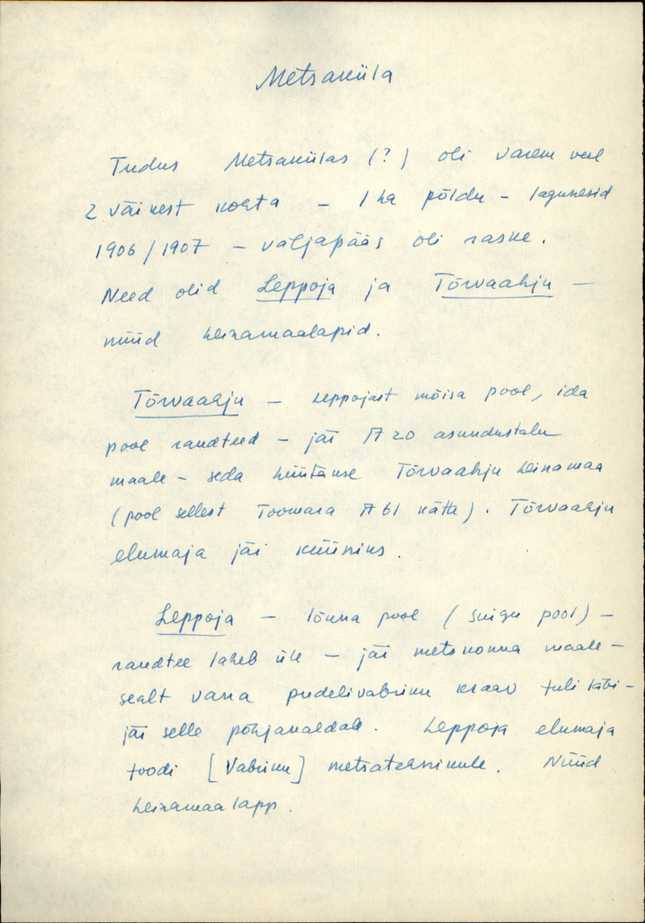 Metsaküla
Tudus Metsakülas (?) oli varem veel
2 väikest kohta - 1 ha põldu - lagunesid
1906/1907 - väljapääs oli raske.
Need olid Leppoja ja Tõrvaahju -
nüüd heinamaalapid.
Tõrvaahju - Leppojast mõisa pool, ida
pool raudteed - jäi A 20 asundustalu
maale - seda hüütakse Tõrvaahju heinamaa
(pool sellest Toomara A 61 kätte). Tõrvaahju
elumaja jäi küüniks.
Leppoja - lõuna pool (Suigu pool) -
raudtee läheb üle - jäi metskonna maale -
sealt vana pudelivabriku kraav tuli läbi -
jäi selle põhjakaldale. Leppoja elumaja
toodi [Vabriku] metsatehnikule. Nüüd
heinamaalapp.